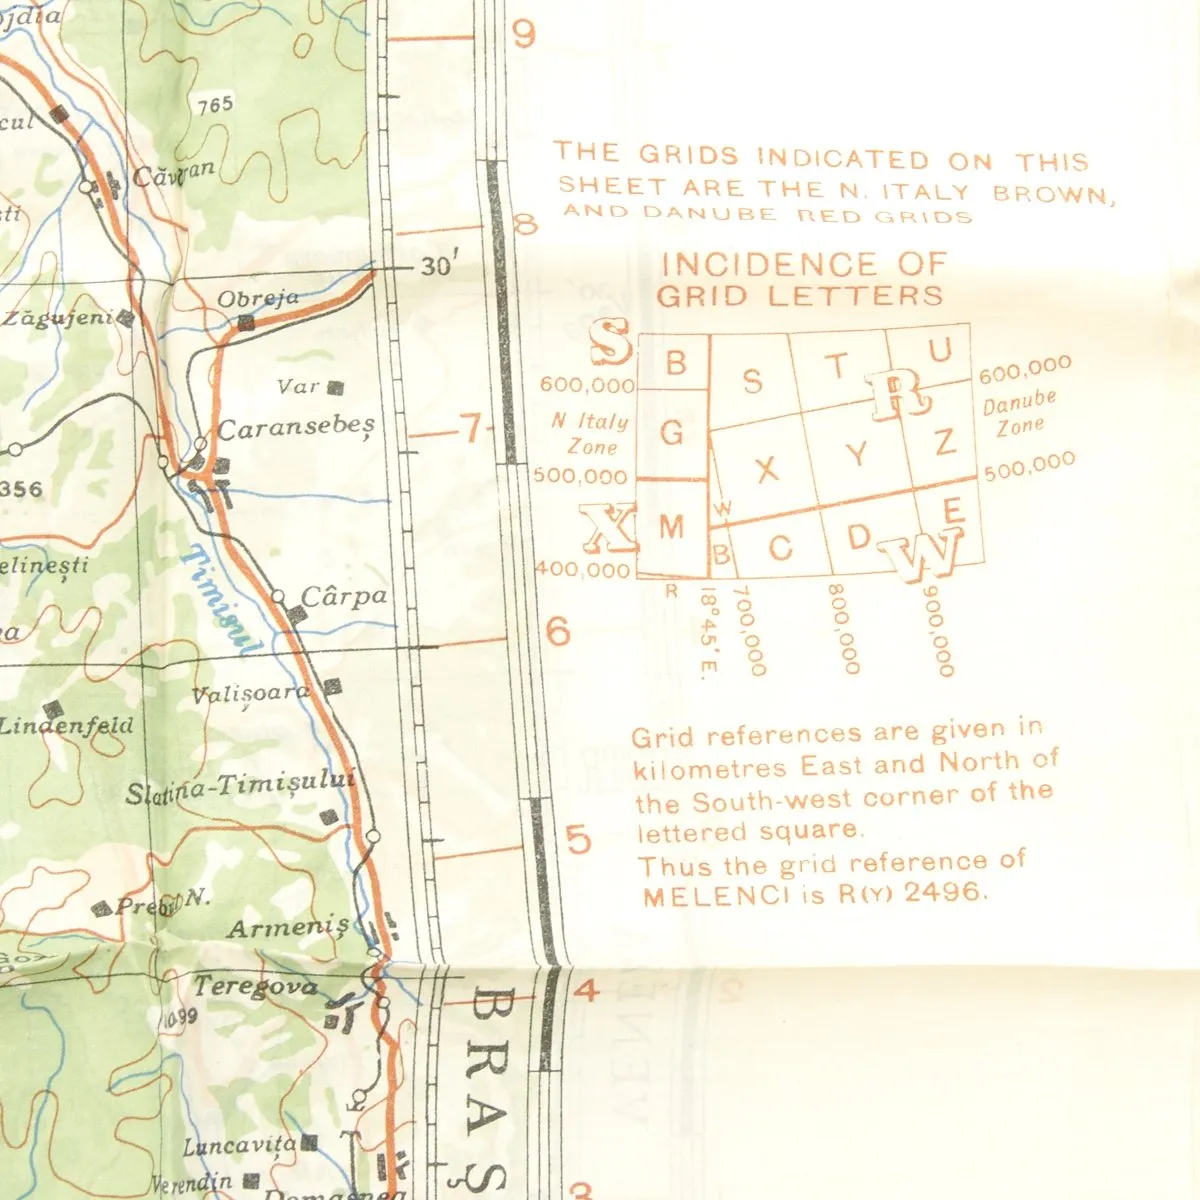 ojdia
9
765
cul
THE GRIDS INDICATED ON THIS
SHEET ARE THE N. ITALY BROWN,
AND DANUBE RED GRIDS
Căvăran
sti
8
30'
INCIDENCE OF
GRID LETTERS
Obreja
Zăgujeni
S
B
S
T
U
R
600,000
600,000
Var
N Italy
Zone
Danube
Zone
G
X
Y
Z
Caransebeș
7
500,000
500,000
356
X
M
W
B
C
D
E
W
400,000
R
18°45' E.
700,000
800,000
900,000
elinești
Timișul
Cârpa
ea
6
Valișoara
Lindenfeld
Grid references are given in
kilometres East and North of
the South-west corner of the
lettered square.
Thus the grid reference of
MELENCI is R(Y) 2496.
Slatina-Timișului
5
N.
Armeniș
Teregova
4
1099
BRAȘ
Luncavița
Verendin
Domașnea
3